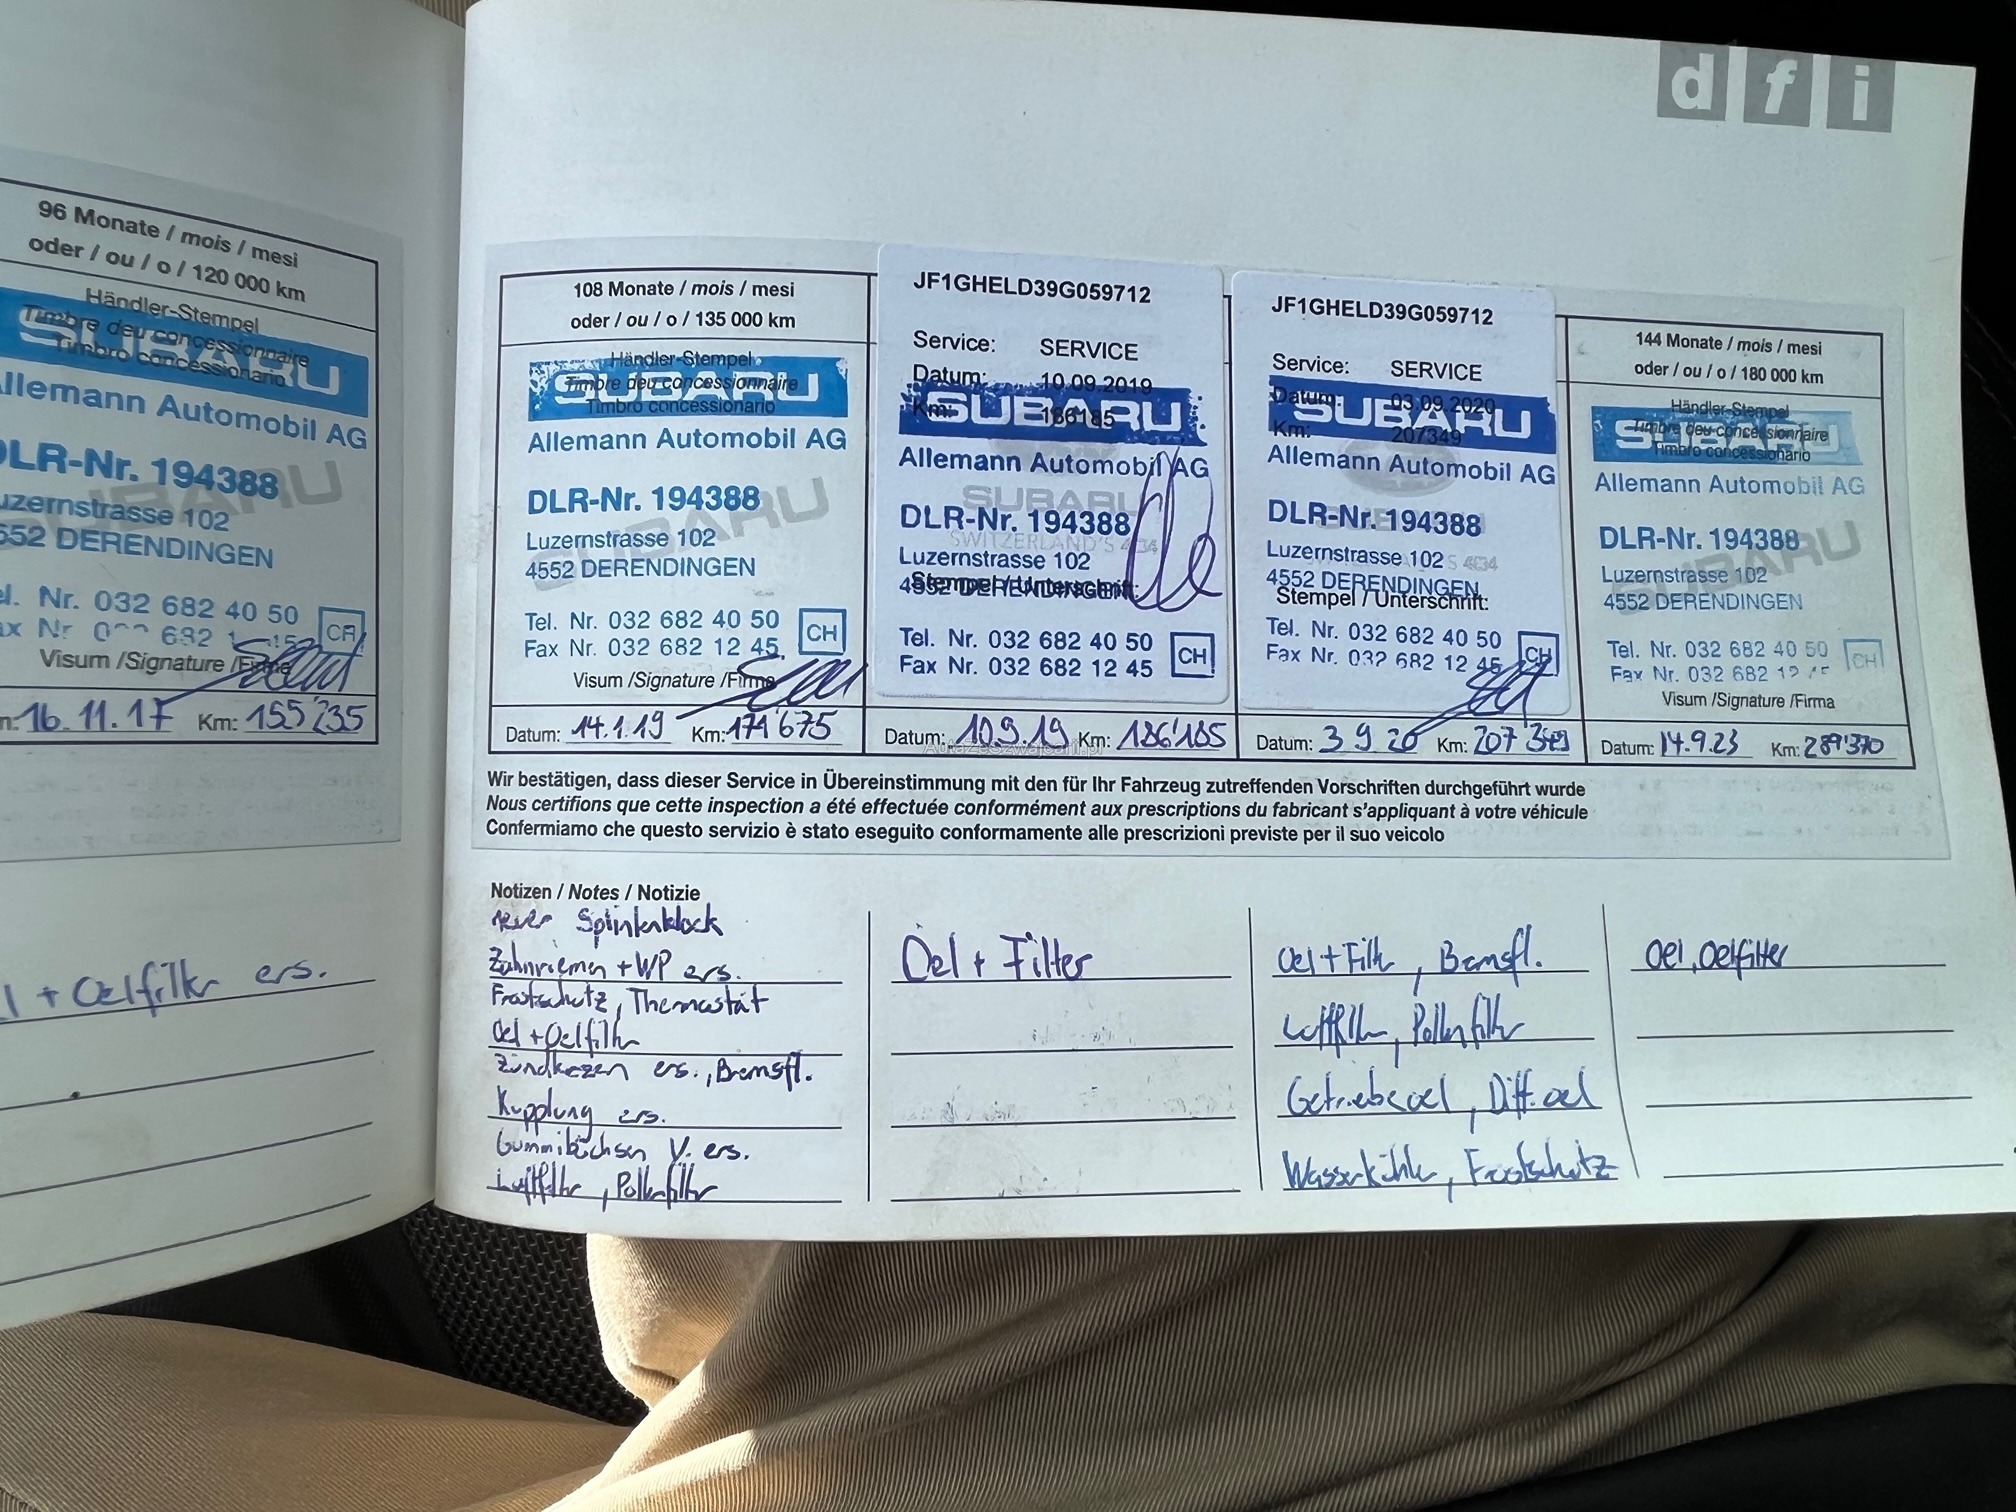 dfi
96 Monate / mois / mesi
oder / ou / o / 120 000 km
Händler-Stempel
Timbre deu concessionnaire
Timbro concessionario
SUBARU
Allemann Automobil AG
DLR-Nr. 194388
Luzernstrasse 102
4552 DERENDINGEN
Tel. Nr. 032 682 40 50
Visum /Signature /Firma
16.11.17 Km: 155'235
l + Oelfilter ers.
108 Monate / mois / mesi
oder / ou / o / 135 000 km
Händler-Stempel
Timbre deu concessionnaire
Timbro concessionario
SUBARU
Allemann Automobil AG
DLR-Nr. 194388
SUBARU
Luzernstrasse 102
4552 DERENDINGEN
Tel. Nr. 032 682 40 50
CH
Fax Nr. 032 682 12 45
Visum /Signature /Firma
Datum: 14.1.19 Km: 171'675
JF1GHELD39G059712
Service: SERVICE
Datum: 10.09.2019
Km: 186185
SUBARU
Allemann Automobil AG
SUBARU
DLR-Nr. 194388
SWITZERLAND'S 4x4
Luzernstrasse 102
4552 DERENDINGEN
Stempel / Unterschrift:
Tel. Nr. 032 682 40 50
Fax Nr. 032 682 12 45
CH
Datum: 10.9.19 Km: 186'185
AutaZeSzwajcarii.pl
JF1GHELD39G059712
Service: SERVICE
Datum: 03.09.2020
Km: 207349
SUBARU
Allemann Automobil AG
DLR-Nr. 194388
Luzernstrasse 102
4552 DERENDINGEN
Stempel / Unterschrift:
Tel. Nr. 032 682 40 50
Fax Nr. 032 682 12 45
CH
Datum: 3 9 20 Km: 207'349
144 Monate / mois / mesi
oder / ou / o / 180 000 km
Händler-Stempel
Timbre deu concessionnaire
Timbro concessionario
SUBARU
Allemann Automobil AG
DLR-Nr. 194388
SUBARU
Luzernstrasse 102
4552 DERENDINGEN
Tel. Nr. 032 682 40 50
CH
Fax Nr. 032 682 12 45
Visum /Signature /Firma
Datum: 14.9.23 Km: 289'370
Wir bestätigen, dass dieser Service in Übereinstimmung mit den für Ihr Fahrzeug zutreffenden Vorschriften durchgeführt wurde
Nous certifions que cette inspection a été effectuée conformément aux prescriptions du fabricant s'appliquant à votre véhicule
Confermiamo che questo servizio è stato eseguito conformamente alle prescrizioni previste per il suo veicolo
Notizen / Notes / Notizie
Zahnriemen + WP ers.
Frostschutz, Thermostat
Oel + Oelfilter
Zündkerzen ers., Bremsfl.
Kupplung ers.
Gummibüchsen V. ers.
Luftfilter, Pollenfilter
Oel + Filter
Oel + Filter, Bremsfl.
Luftfilter, Pollenfilter
Getriebeoel, Diff.oel
Wasserkühler, Frostschutz
Oel, Oelfilter